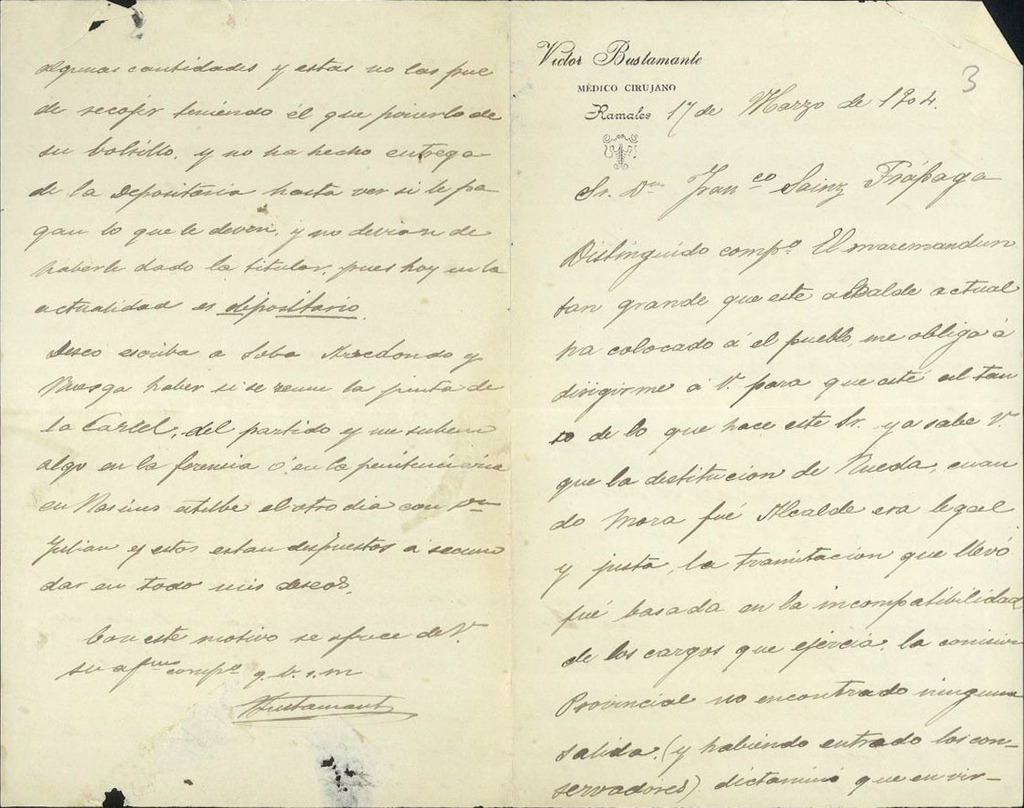 Victor Bustamante
MÉDICO CIRUJANO
Ramales 17 de Marzo de 1904.
3
Sr. Dn Franco Sainz Trápaga
Distinguido compo. El maremandum
tan grande que este alcalde actual
ha colocado á el pueblo, me obliga á
dirigirme á V. para que esté al tan
to de lo que hace este Sr. ya sabe V.
que la destitucion de Rueda, cuan
do Mora fué Alcalde era legal
y justa, la tramitacion que llevó
fué basada en la incompatibilidad
de los cargos que ejercia, la comision
Provincial no encontrado ninguna
salida, (y habiendo entrado los con-
servadores) dictaminó que en vir-
algunas cantidades y estas no las pue
de recojer teniendo él que ponerlo de
su bolsillo, y no ha hecho entrega
de la Depositaria hasta ver si le pa
gan lo que le deven, y no devian de
haberle dado la titular, pues hoy en la
actualidad es depositario.
Deseo escriba a Soba Arredondo y
Ruesga haber si se reune la junta de
la Carcel, del partido y me suben
algo en la forencia ó en la penitenciaria
en Rasines estube el otro dia con Dn
Julian y estos estan dispuestos a secun
dar en todo mis deseos.
Con este motivo se ofrece de V.
su afmo compo q. b. s. m
Bustamante